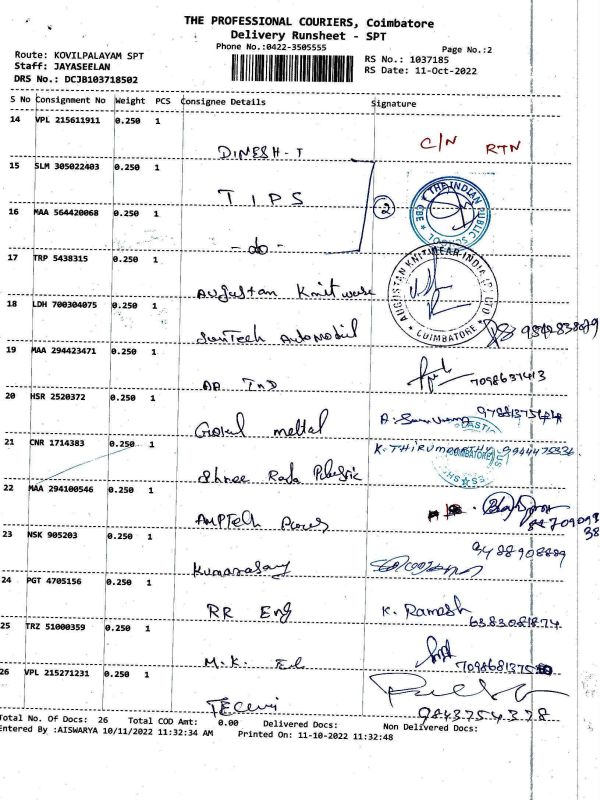 THE PROFESSIONAL COURIERS, Coimbatore
Delivery Runsheet - SPT
Phone No.:0422-3505555
Page No.:2
Route: KOVILPALAYAM SPT
Staff: JAYASEELAN
DRS No.: DCJB103718502
RS No.: 1037185
RS Date: 11-Oct-2022
S No Consignment No Weight PCS Consignee Details Signature
14 VPL 215611911 0.250 1
DINESH-T C/N RTN
15 SLM 305022403 0.250 1
TIPS
THE INDIAN PUBLIC SCHOOL CBE
2
16 MAA 564420068 0.250 1
- do -
17 TRP 5438315 0.250 1
Augustan Knitwear
AUGUSTAN KNITWEAR INDIA PVT LTD
COIMBATORE
18 LDH 700304075 0.250 1
SunTech Automobil
19 MAA 294423471 0.250 1
AA Ind 7098637413
20 HSR 2520372 0.250 1
Gokul mettal
21 CNR 1714383 0.250 1
K. THIRUMOORTHY
COIMBATORE
Shree Rada Plastic
22 MAA 294100546 0.250 1
AMPTech
23 NSK 905203 0.250 1
9488908889
Kumarasamy
24 PGT 4705156 0.250 1
RR Eng K. Ramesh
6383081874
25 TRZ 51000359 0.250 1
M.K.
26 VPL 215271231 0.250 1
9843754378
Total No. Of Docs: 26 Total COD Amt: 0.00 Delivered Docs: Non Delivered Docs:
Entered By :AISWARYA 10/11/2022 11:32:34 AM Printed On: 11-10-2022 11:32:48